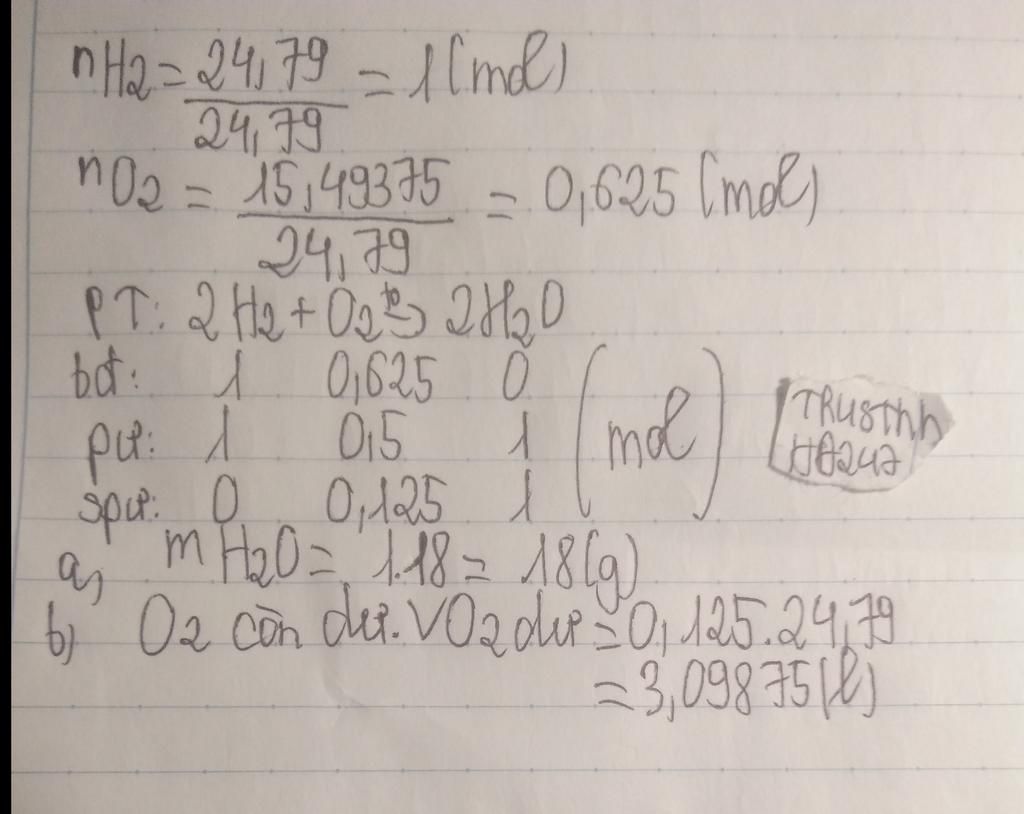 nH2 = 24,79 / 24,79 = 1 (mol)
nO2 = 15,49375 / 24,79 = 0,625 (mol)
PT: 2H2 + O2 t° → 2H2O
bđ: 1 0,625 0
pư: 1 0,5 1 (mol)
spư: 0 0,125 1
a, mH2O = 1.18 = 18(g)
b) O2 còn dư. VO2 dư = 0,125.24,79
= 3,09875(l)